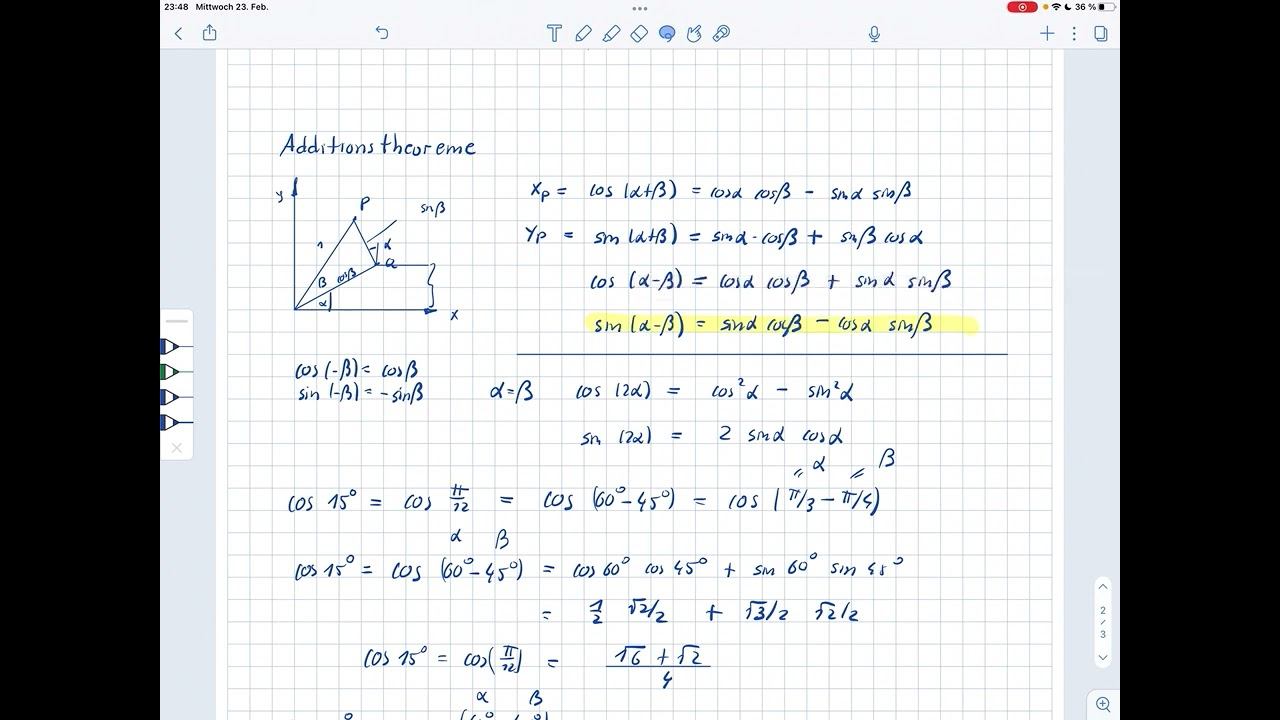 23:48 Mittwoch 23. Feb. 36 %
Additionstheoreme
y
P
sinβ
1
α
Q
β cosβ
α
x
x_P = cos (α+β) = cosα cosβ - sinα sinβ
y_P = sin (α+β) = sinα · cosβ + sinβ cosα
cos (α-β) = cosα cosβ + sinα sinβ
sin (α-β) = sinα cosβ - cosα sinβ
cos (-β) = cosβ
sin (-β) = - sinβ
α = β cos (2α) = cos²α - sin²α
sin (2α) = 2 sinα cosα
= α = β
cos 15° = cos π/12 = cos (60° - 45°) = cos (π/3 - π/4)
α β
cos 15° = cos (60° - 45°) = cos 60° cos 45° + sin 60° sin 45°
= 1/2 √2/2 + √3/2 √2/2
cos 15° = cos(π/12) = (√6 + √2)/4
α β
2 / 3